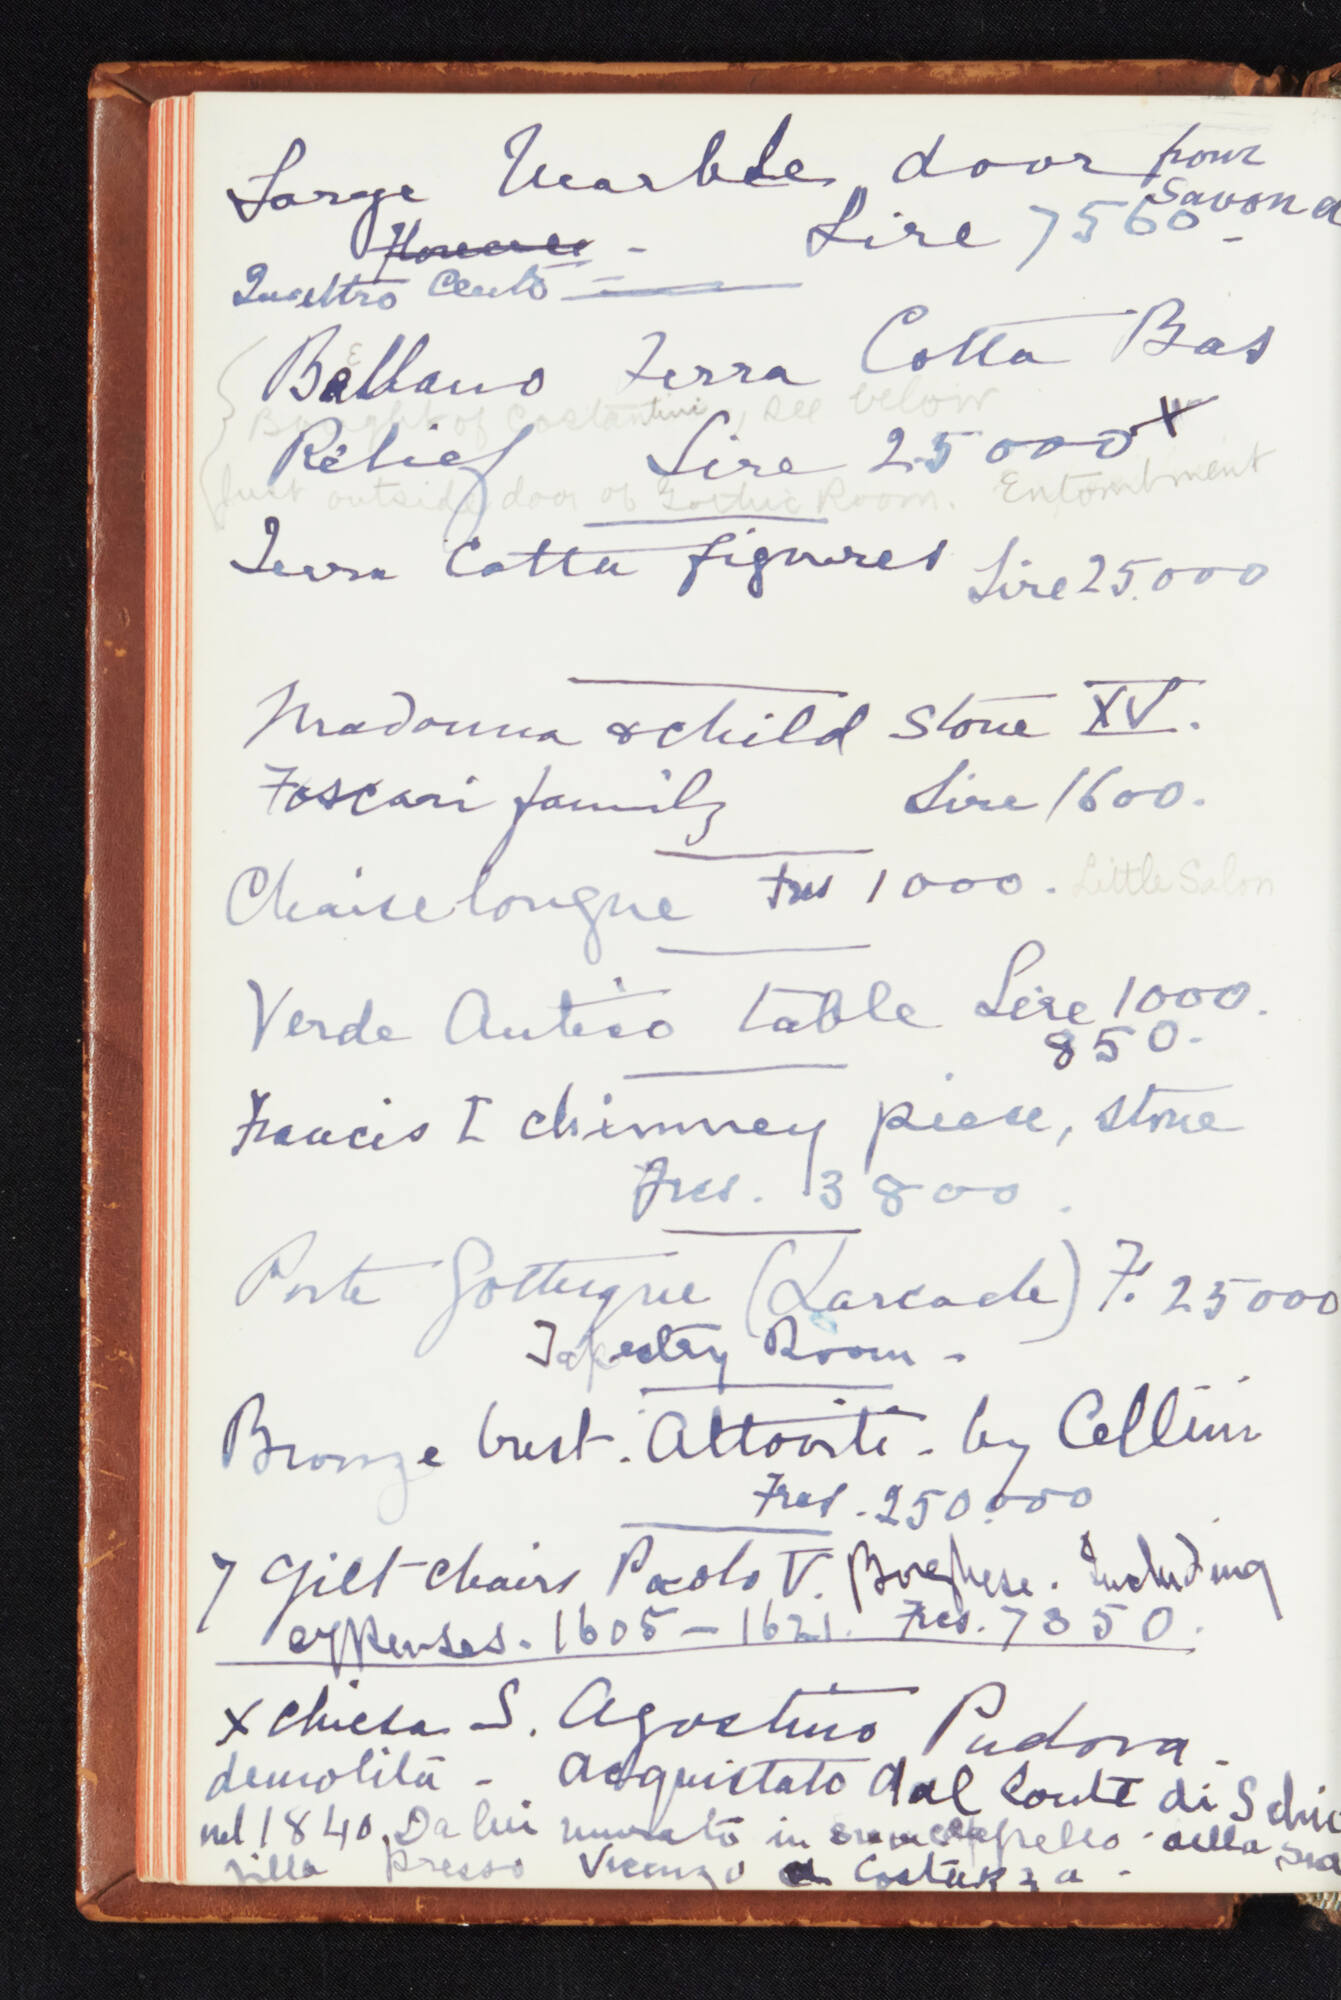 Large Marble door from
Savona
Florence - Lire 7560-
Quattro Cento
Bellano Terra Cotta Bas
Bought of Costantini, see below
Relief Lire 25000 x
Just outside door of Gothic Room. Entombment
Terra Cotta figures Lire 25.000
Madonna & child Stone XV.
Foscari family Lire 1600.
Chaise longue Frcs 1000. Little Salon
Verde Antico table Lire 1000.
850.
Francis I chimney piece, stone
Frcs. 3800.
Porte Gothique (Larcade) F. 25000
Tapestry Room -
Bronze bust. Altoviti - by Cellini
Frcs. 250.000
7 Gilt chairs Paolo V. Borghese. Including
expenses. 1605-1621. Frcs. 7350.
x chiesa S. Agostino Padova -
demolita - acquistato dal Conte di Schio
nel 1840. Da lui murato in cappella della sua
villa presso Vicenza a Costanza -